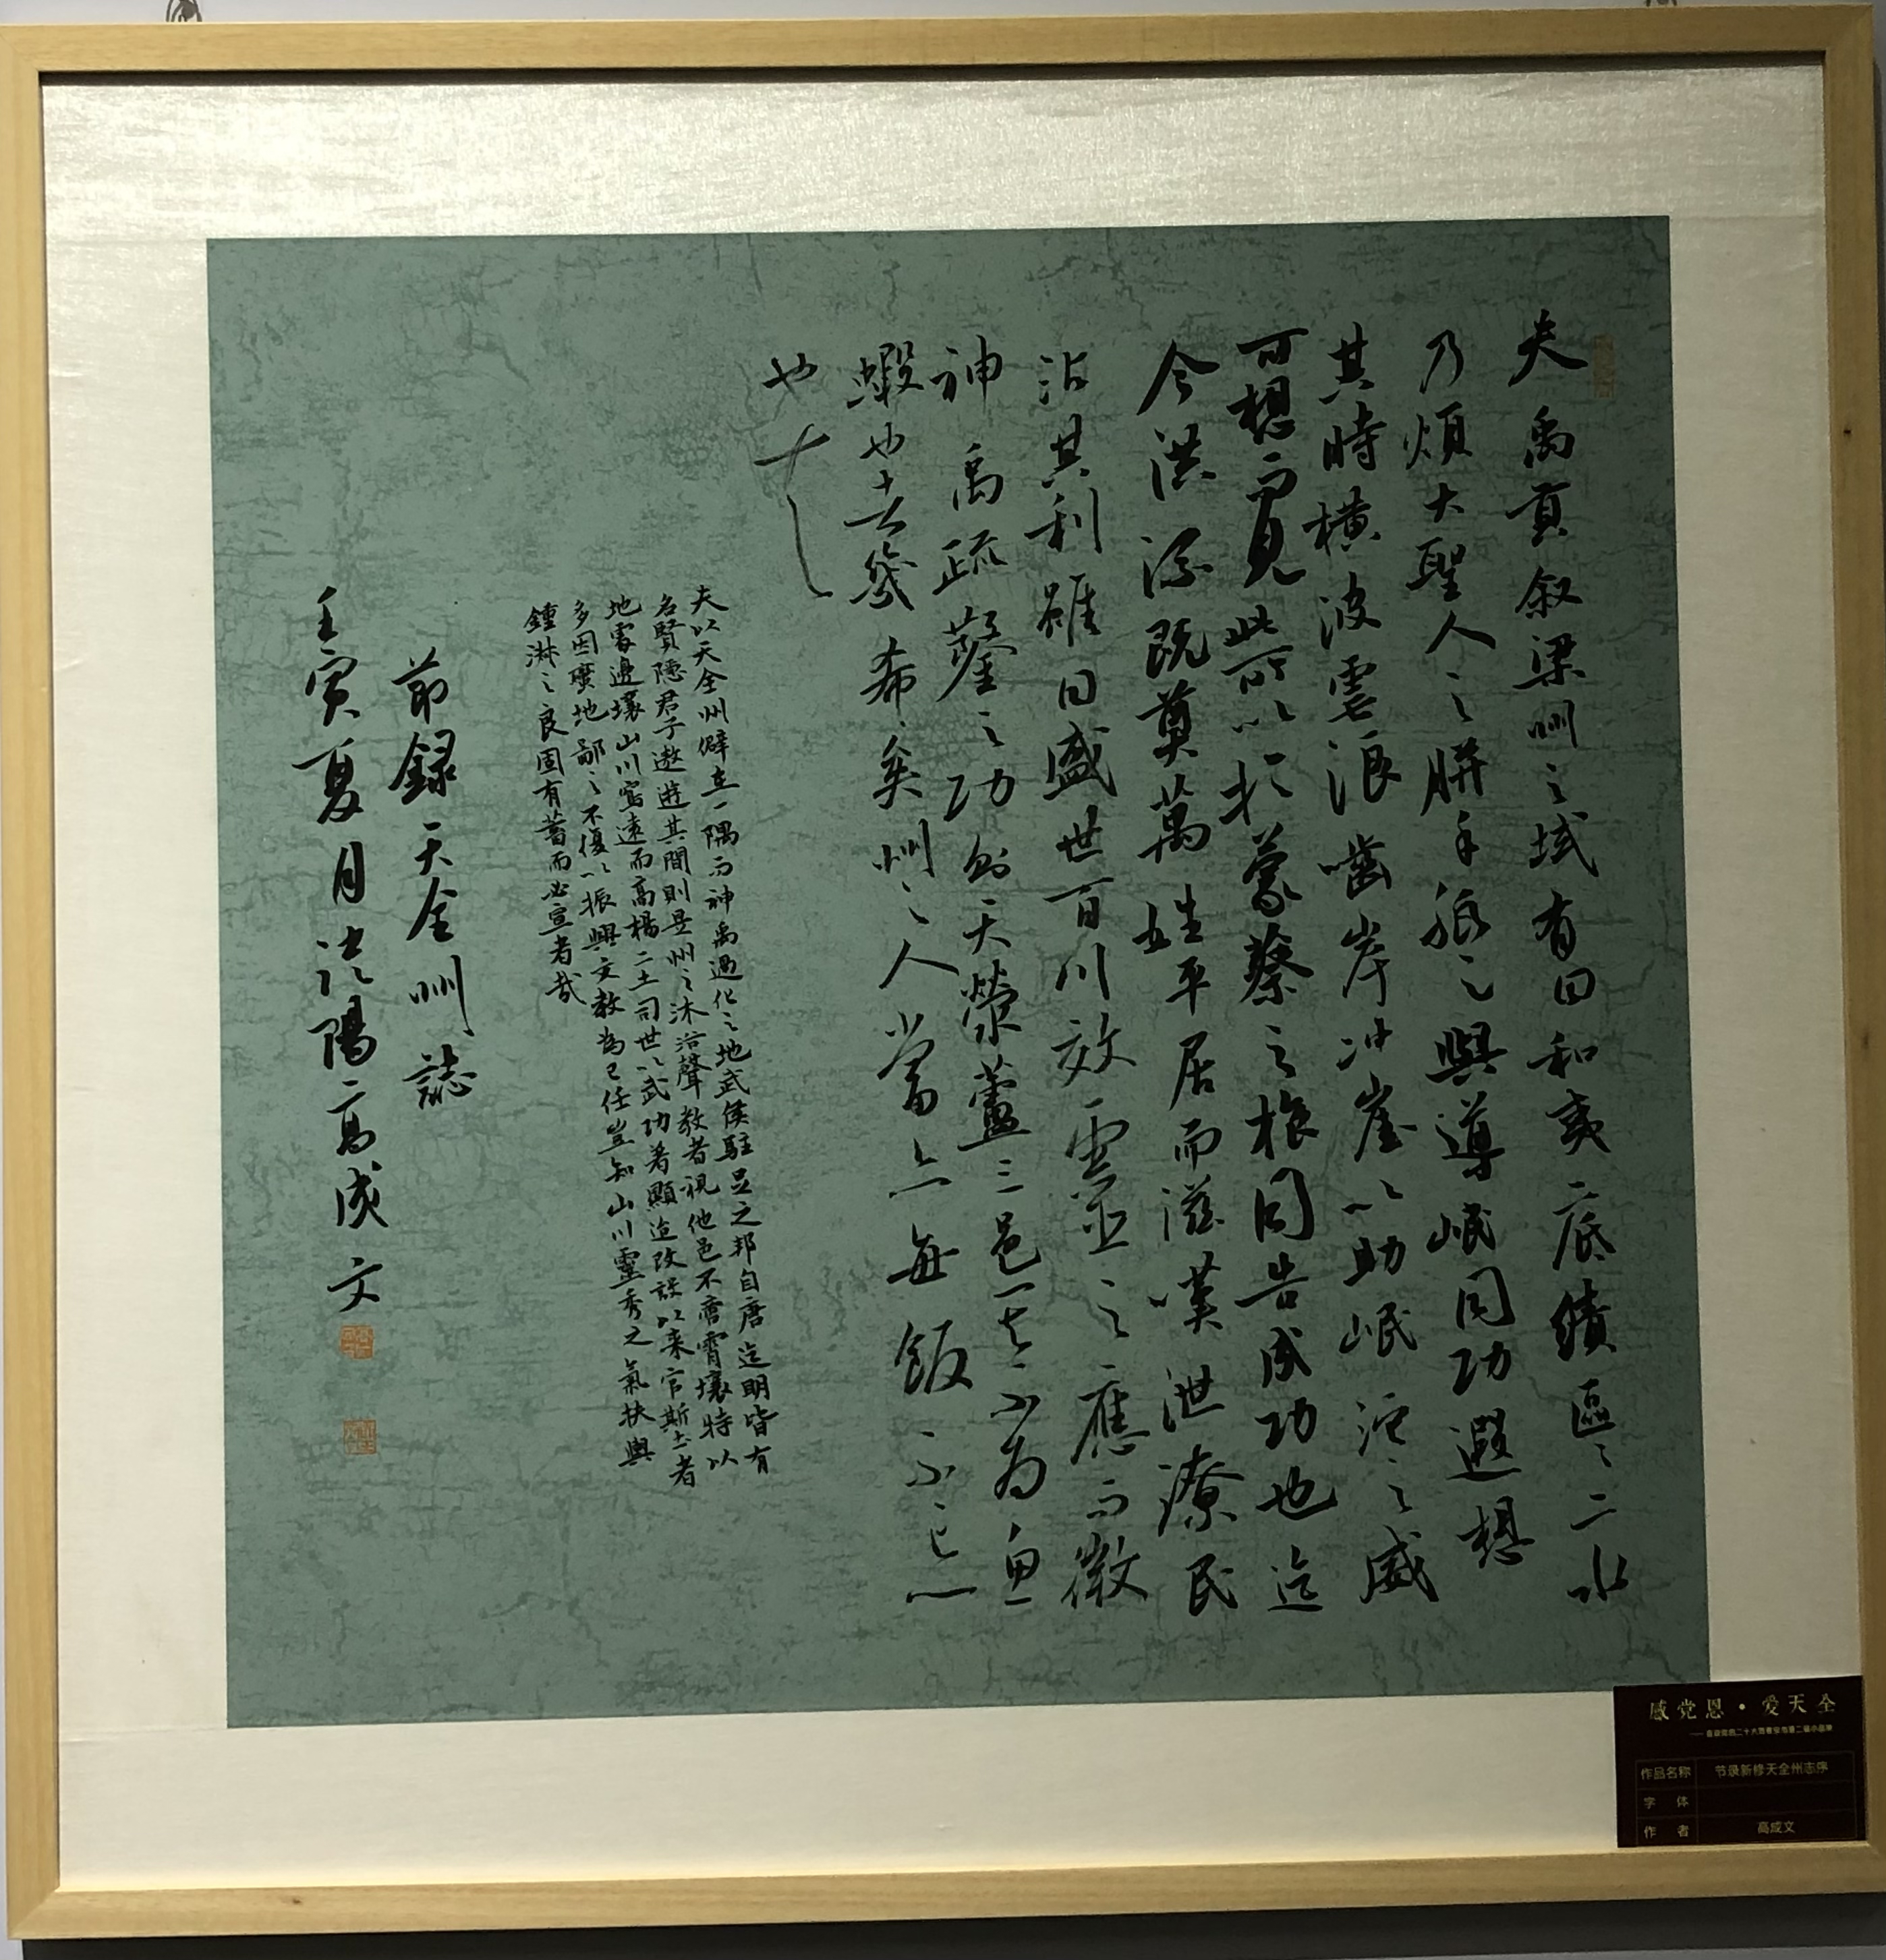 夫禹貢叙梁州之域有曰和夷底績區〻二水
乃煩大聖人之胼手胝足與導岷同功遐想
其時橫波雲浪嚙岸冲崖以助岷沱之威
可想而見此所以於蒙蔡之旅同告成功也迄
今洪流既奠萬姓平居而滋嘆泄潦民
沾其利雖曰盛世百川效靈之應而微
神禹疏鑿之功則天滎蘆三邑一其不為魚
蝦也去幾希矣州之人當亦每飯不忘
也
夫以天全州僻在一隅而神禹過化之地武侯駐足之邦自唐迄明皆有
名賢隱君子遨遊其間則是州之沐浴聲教者視他邑不啻霄壤特以
地處邊壤山川寫遠而高楊二土司世以武功著顯迨改設以來官斯土者
多因曠地鄙之不復以振興文教為己任豈知山川靈秀之氣扶輿
鍾淋之良固有蓄而必宣者哉
節錄天全州誌
壬寅夏月沈陽高成文
感党恩·爱天全
作品名称 节录新修天全州志序
字 体
作 者 高成文